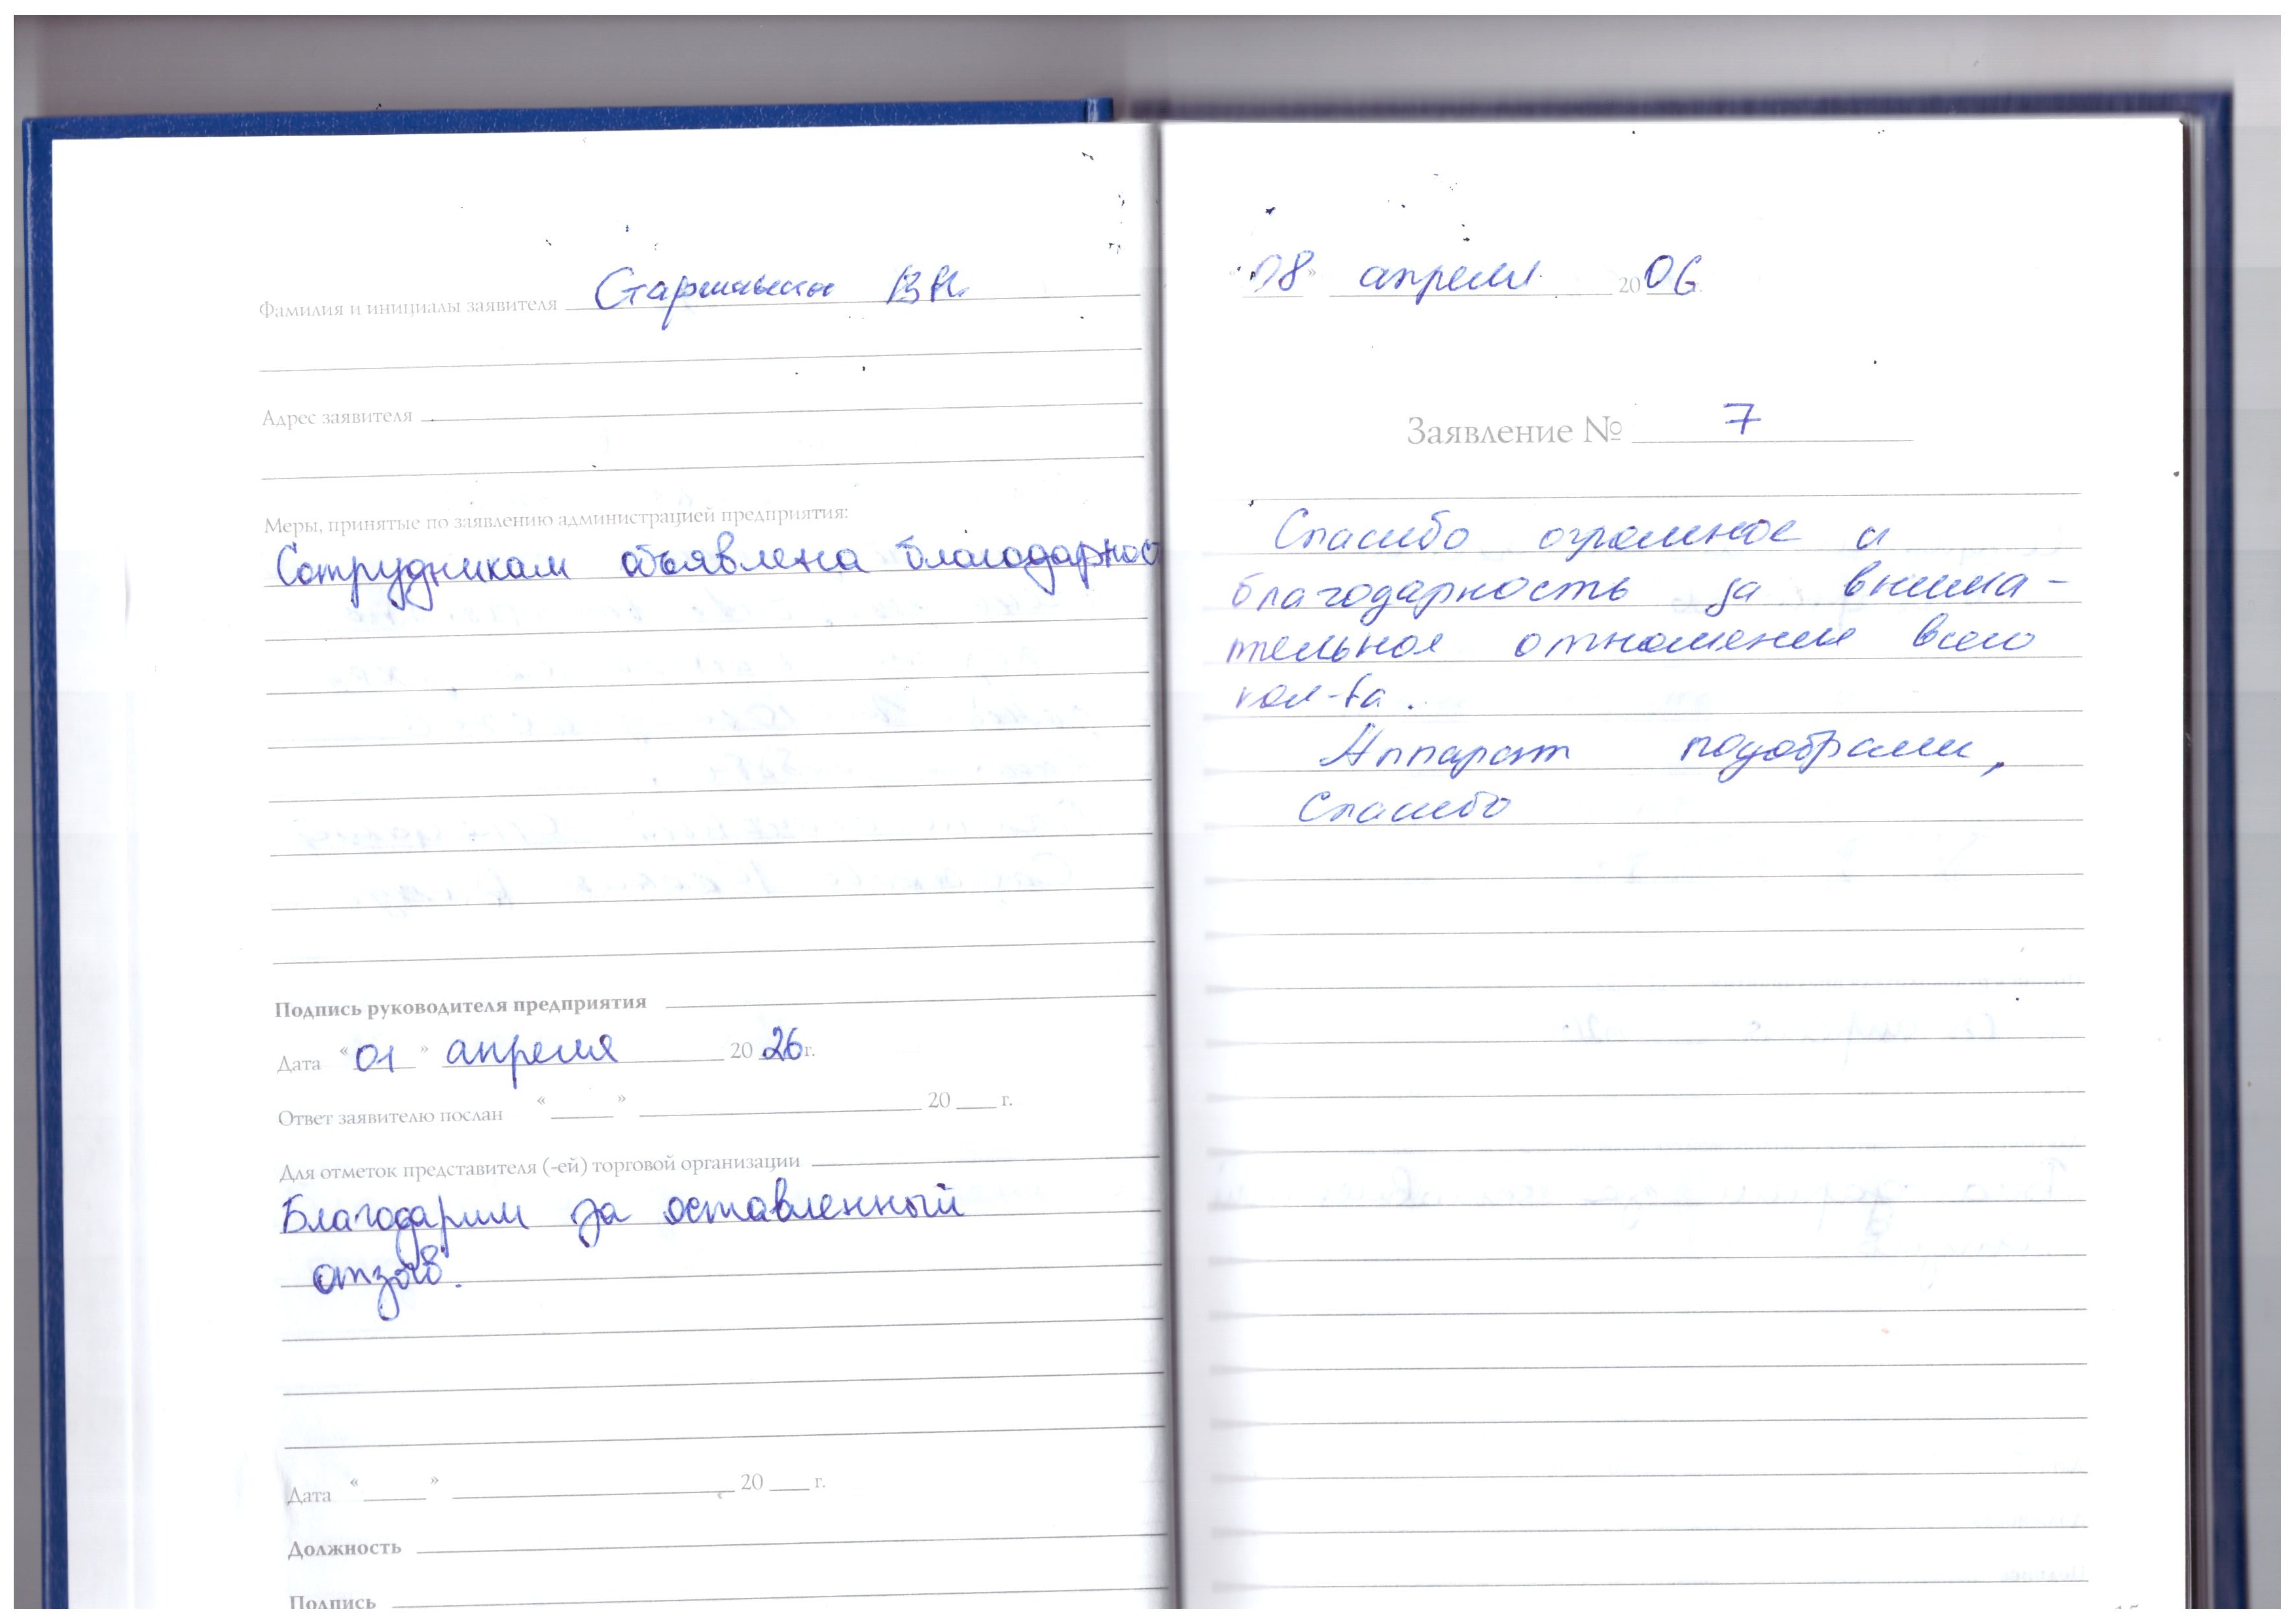 Фамилия и инициалы заявителя
Адрес заявителя
Меры, принятые по заявлению администрацией предприятия:
Сотрудникам объявлена благодарнос
Подпись руководителя предприятия
Дата «01» апреля 2026 г.
Ответ заявителю послан « » 20 г.
Для отметок представителя (-ей) торговой организации
Благодарим за оставленный
отзыв.
Дата « » 20 г.
Должность
Подпись
«08» апреля 2006
Заявление № 7
Спасибо огромное и
благодарность за внима-
тельное отношение всего
кол-ва.
Аппарат подобрали,
Спасибо